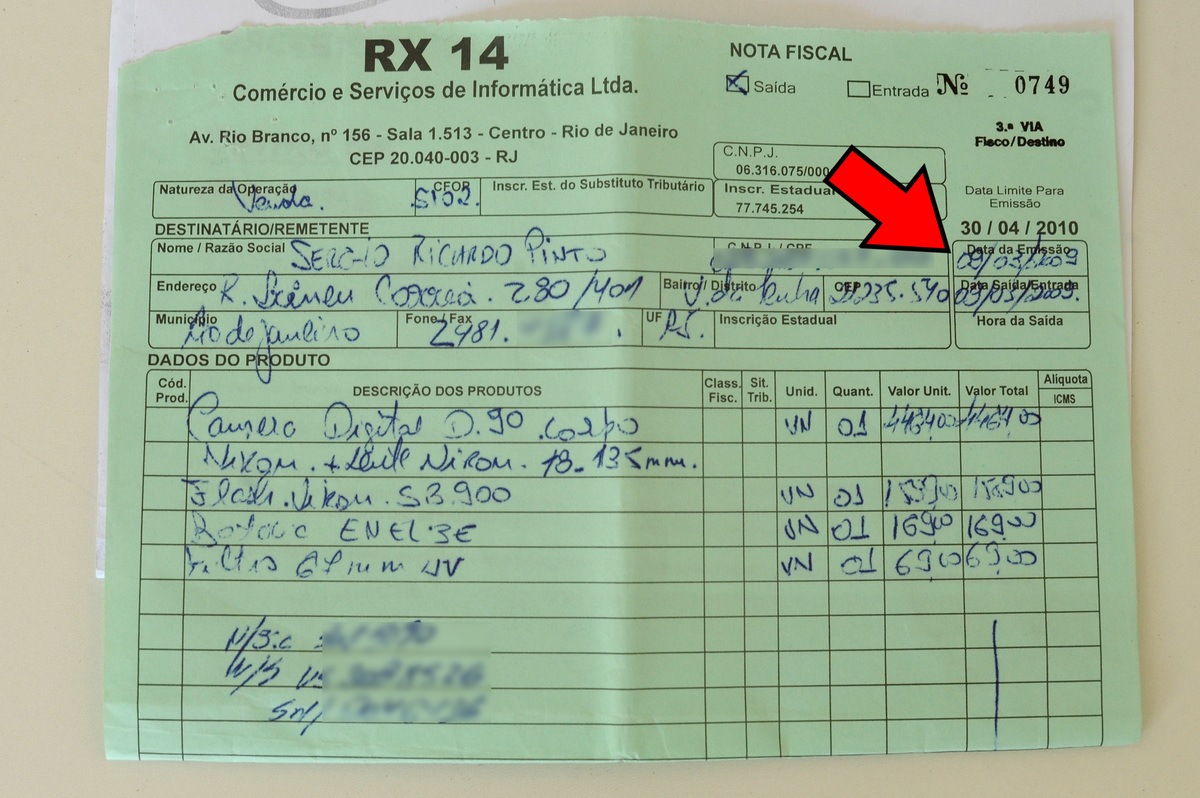 RX 14
Comércio e Serviços de Informática Ltda.
Av. Rio Branco, nº 156 - Sala 1.513 - Centro - Rio de Janeiro
CEP 20.040-003 - RJ
NOTA FISCAL
Saída Entrada Nº 0749
3.ª VIA
Fisco/Destino
C.N.P.J.
06.316.075/000
Inscr. Estadual
77.745.254
Data Limite Para
Emissão
30 / 04 / 2010
Natureza da Operação CFOP Inscr. Est. do Substituto Tributário
Venda. 5102.
DESTINATÁRIO/REMETENTE
Nome / Razão Social C.N.P.J. / CPF Data da Emissão
SERGIO RICARDO PINTO 09/03/2009
Endereço Bairro / Distrito CEP Data Saída/Entrada
Correa. 280/401 21235.540 09/03/2009.
Município Fone / Fax UF Inscrição Estadual Hora da Saída
Rio de janeiro 2481. RJ.
DADOS DO PRODUTO
Cód. Prod. DESCRIÇÃO DOS PRODUTOS Class. Fisc. Sit. Trib. Unid. Quant. Valor Unit. Valor Total Alíquota ICMS
Camera Digital D.90 corpo UN 01
Nikon. + Lente Nikon. 18-135mm.
Flash Nikon. SB.900 UN 01
Bateria ENEL3E UN 01 169,00 169,00
Filtro 67mm UV UN 01 69,00 69,00